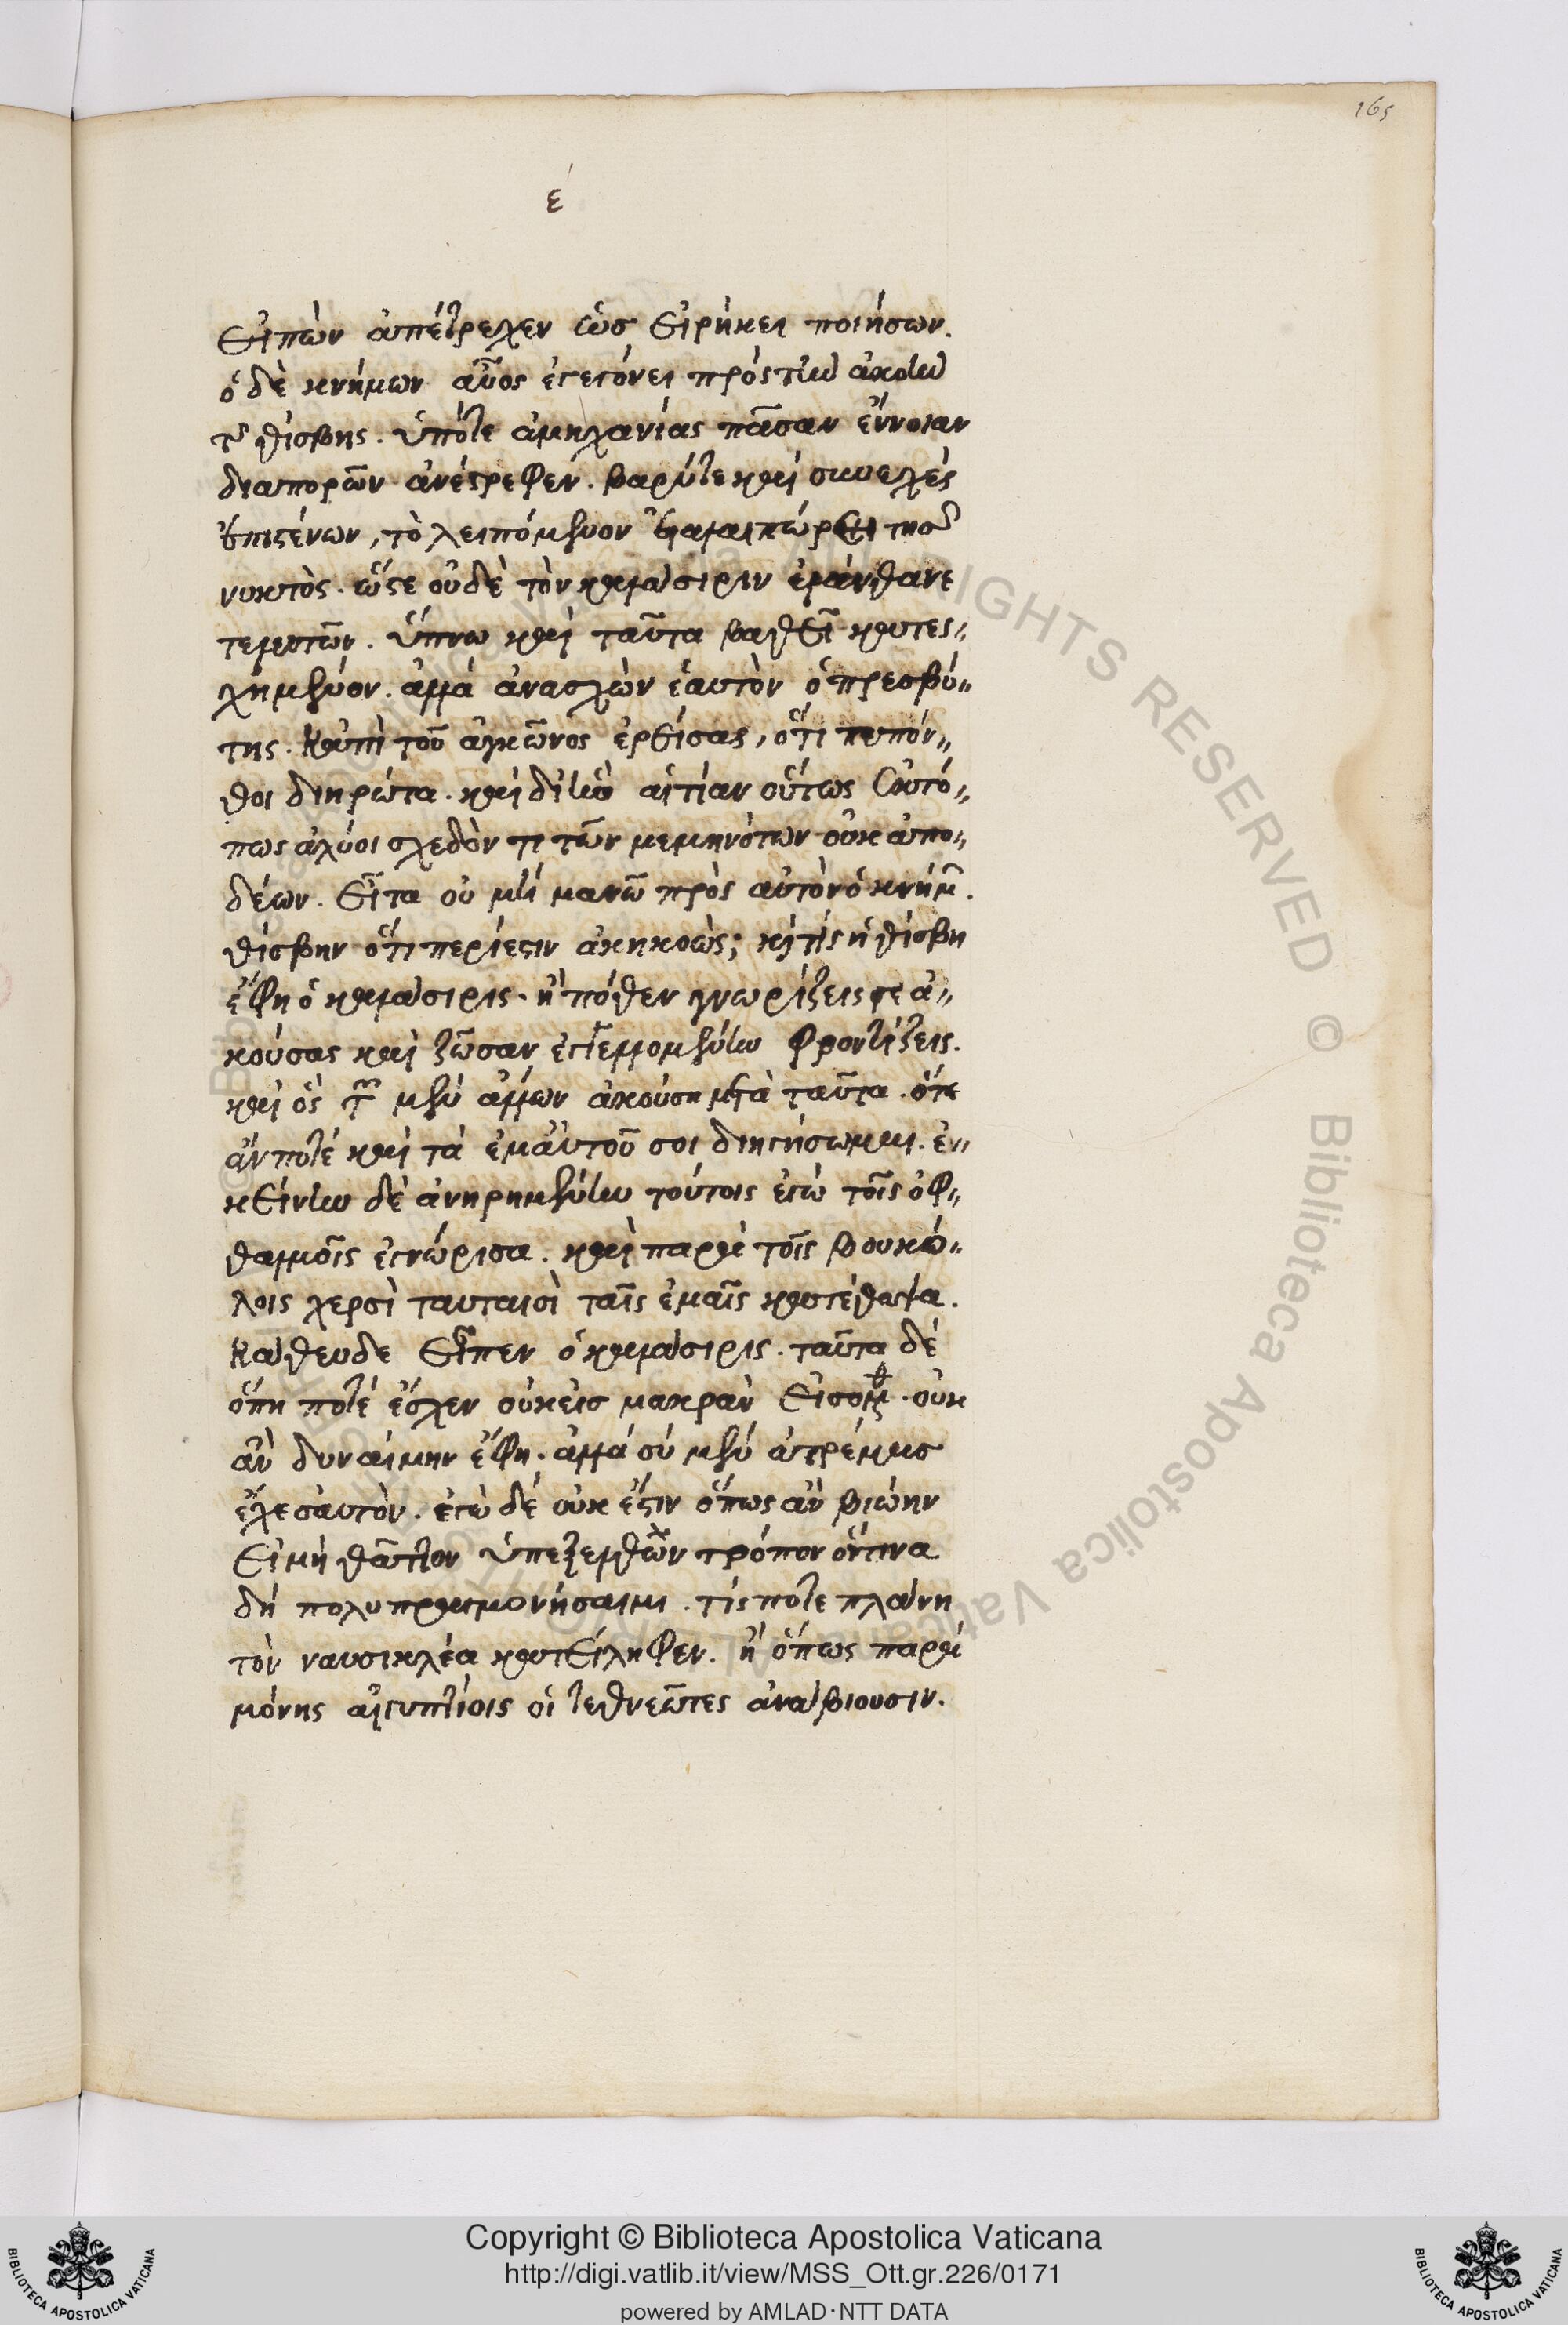 165
έ
εἰπὼν ἀπέτρεχεν ὡσ εἰρήκει ποιήσων.
ὁ δὲ κνήμων αὖος ἐγεγόνει πρὸς τὴν ἀκοὴν
τῆς θίσβης. ὑπότε ἀμηχανίας πᾶσαν ἔννοιαν
διαπορῶν ἀνέστρεφεν. βαρύτε καὶ συνεχὲς
ἐπιστένων, τὸ λειπόμενον ἐταλαιπώρει τῆσ
νυκτὸς. ὥστε οὐδὲ τὸν καλάσιριν ἐμάνθανε
τελευτῶν. ὕπνω καὶ ταῦτα βαθεῖ κατες„
χημένον. ἀλλὰ ἀνασχὼν ἑαυτὸν ὁ πρεσβύ„
της. κἀπὶ τοῦ ἀγκῶνος ἐρείσας, ὅτι πεπόν„
θοι διηρώτα. καὶ δι' ἣν αἰτίαν οὕτως ἐκτό„
πως ἀλύοι σχεδόν τι τῶν μεμηνότων οὐκ ἀπο„
δέων. εἶτα οὐ μὴ μανῶ πρὸς αὐτὸν ὁ κνήμ.
θίσβην ὅτι περίεστιν ἀκηκοὼς; καὶ τίς ἡ θίσβη
ἔφη ὁ καλάσιρις. ἢ πόθεν γνωρίζεις τε ἀ„
κούσας καὶ ζῶσαν ἐπαγγελλομένην φροντίζεις.
καὶ ὃς τῶν μὲν ἄλλων ἀκούση μετὰ ταῦτα. ὅτε
ἄν ποτέ καὶ τὰ ἐμαὐτοῦ σοι διηγήσωμαι. ἐ„
κείνην δὲ ἀνηρημένην τούτοις ἐγὼ τοῖς ὀφ„
θαλμοῖς ἐγνώρισα. καὶ παρὰ τοῖς βουκό„
λοις χερσὶ ταυταισὶ ταῖς ἐμαῖς κατέθαψα.
κάθευδε εἶπεν ὁ καλάσιρις. ταῦτα δὲ
ὅπη ποτέ ἔσχεν οὐκεἰσ μακρὰν εἰσόμεθα. οὐκ
ἂν δυναίμην ἔφη. ἀλλὰ σύ μὲν ἀτρέμασ
ἔχε σαυτὸν. ἐγὼ δέ οὐκ ἔστιν ὅπως ἂν βιώην
εἰ μὴ θᾶττον ὑπεξελθὼν τρόπον ὅντινα
δὴ πολυπραγμονήσαιμι. τίς ποτε πλάνη
τὸν ναυσικλέα κατείληφεν. ἢ ὅπως παρὰ
μόνης αἰγυπτίοις οἱ τεθνεῶτες ἀνάβιουσιν.
RIGHTS RESERVED © Biblioteca Apostolica Vaticana
Copyright © Biblioteca Apostolica Vaticana
http://digi.vatlib.it/view/MSS_Ott.gr.226/0171
powered by AMLAD·NTT DATA
BIBLIOTECA APOSTOLICA VATICANA
BIBLIOTECA APOSTOLICA VATICANA